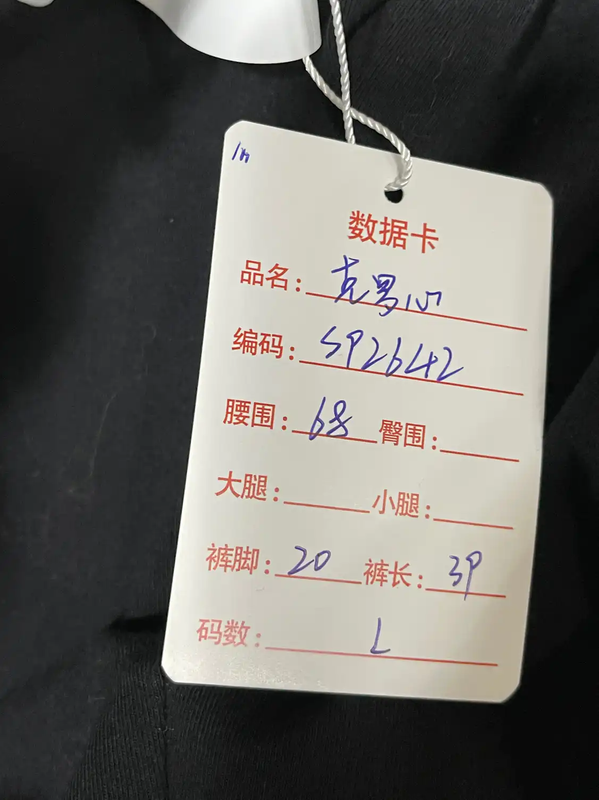 数据卡
品名: 克罗心
编码: SP2642
腰围: 68 臀围:
大腿: 小腿:
裤脚: 20 裤长: 39
码数: L